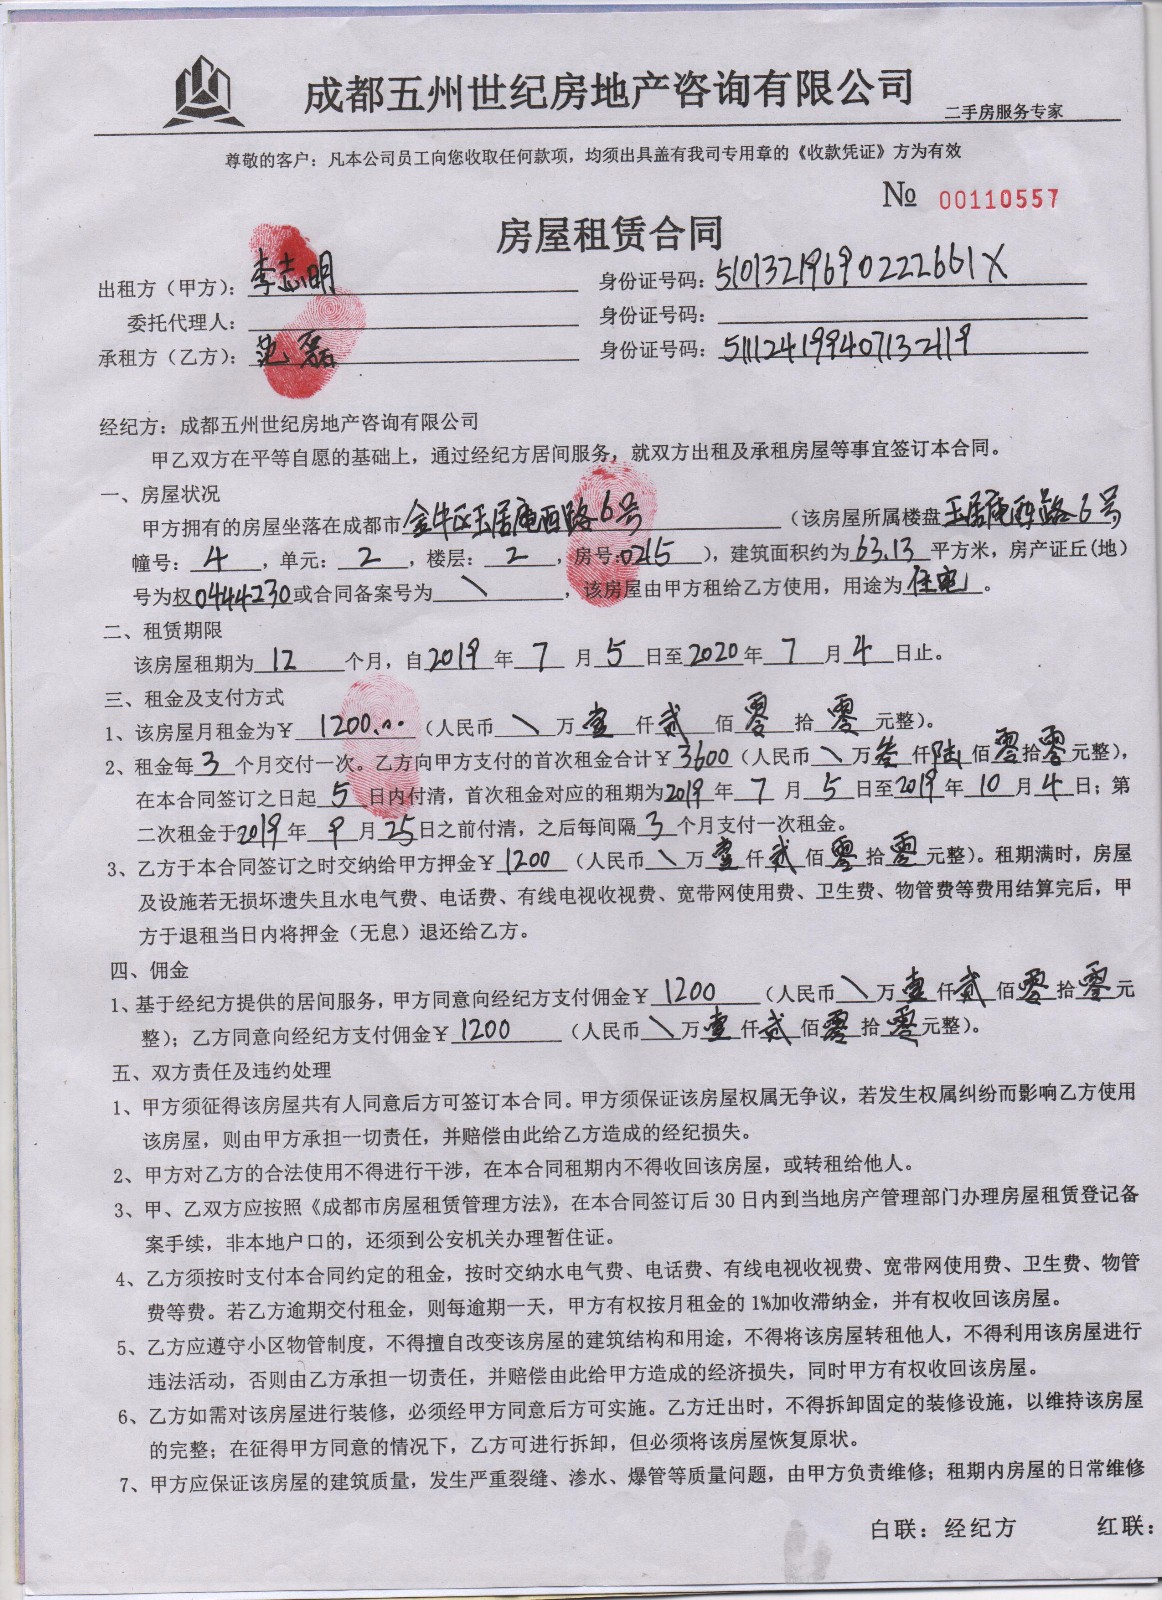 成都五州世纪房地产咨询有限公司
二手房服务专家
尊敬的客户：凡本公司员工向您收取任何款项，均须出具盖有我司专用章的《收款凭证》方为有效
№ 00110557
房屋租赁合同
出租方（甲方）：李志明 身份证号码：51013219690222661X
委托代理人： 身份证号码：
承租方（乙方）：范磊 身份证号码：511124199407132119
经纪方：成都五州世纪房地产咨询有限公司
甲乙双方在平等自愿的基础上，通过经纪方居间服务，就双方出租及承租房屋等事宜签订本合同。
一、房屋状况
甲方拥有的房屋坐落在成都市金牛区玉居庵西路6号（该房屋所属楼盘玉居庵西路6号
幢号：4，单元：2，楼层：2，房号:0215），建筑面积约为63.13平方米，房产证丘(地)
号为权0444230或合同备案号为\，该房屋由甲方租给乙方使用，用途为住宅。
二、租赁期限
该房屋租期为12个月，自2019年7月5日至2020年7月4日止。
三、租金及支付方式
1、该房屋月租金为￥1200.00（人民币\万壹仟贰佰零拾零元整）。
2、租金每3个月交付一次。乙方向甲方支付的首次租金合计￥3600（人民币\万叁仟陆佰零拾零元整），
在本合同签订之日起5日内付清，首次租金对应的租期为2019年7月5日至2019年10月4日；第
二次租金于2019年9月25日之前付清，之后每间隔3个月支付一次租金。
3、乙方于本合同签订之时交纳给甲方押金￥1200（人民币\万壹仟贰佰零拾零元整）。租期满时，房屋
及设施若无损坏遗失且水电气费、电话费、有线电视收视费、宽带网使用费、卫生费、物管费等费用结算完后，甲
方于退租当日内将押金（无息）退还给乙方。
四、佣金
1、基于经纪方提供的居间服务，甲方同意向经纪方支付佣金￥1200（人民币\万壹仟贰佰零拾零元
整）；乙方同意向经纪方支付佣金￥1200（人民币\万壹仟贰佰零拾零元整）。
五、双方责任及违约处理
1、甲方须征得该房屋共有人同意后方可签订本合同。甲方须保证该房屋权属无争议，若发生权属纠纷而影响乙方使用
该房屋，则由甲方承担一切责任，并赔偿由此给乙方造成的经纪损失。
2、甲方对乙方的合法使用不得进行干涉，在本合同租期内不得收回该房屋，或转租给他人。
3、甲、乙双方应按照《成都市房屋租赁管理方法》，在本合同签订后30日内到当地房产管理部门办理房屋租赁登记备
案手续，非本地户口的，还须到公安机关办理暂住证。
4、乙方须按时支付本合同约定的租金，按时交纳水电气费、电话费、有线电视收视费、宽带网使用费、卫生费、物管
费等费。若乙方逾期交付租金，则每逾期一天，甲方有权按月租金的1%加收滞纳金，并有权收回该房屋。
5、乙方应遵守小区物管制度，不得擅自改变该房屋的建筑结构和用途，不得将该房屋转租他人，不得利用该房屋进行
违法活动，否则由乙方承担一切责任，并赔偿由此给甲方造成的经济损失，同时甲方有权收回该房屋。
6、乙方如需对该房屋进行装修，必须经甲方同意后方可实施。乙方迁出时，不得拆卸固定的装修设施，以维持该房屋
的完整；在征得甲方同意的情况下，乙方可进行拆卸，但必须将该房屋恢复原状。
7、甲方应保证该房屋的建筑质量，发生严重裂缝、渗水、爆管等质量问题，由甲方负责维修；租期内房屋的日常维修
白联：经纪方 红联：